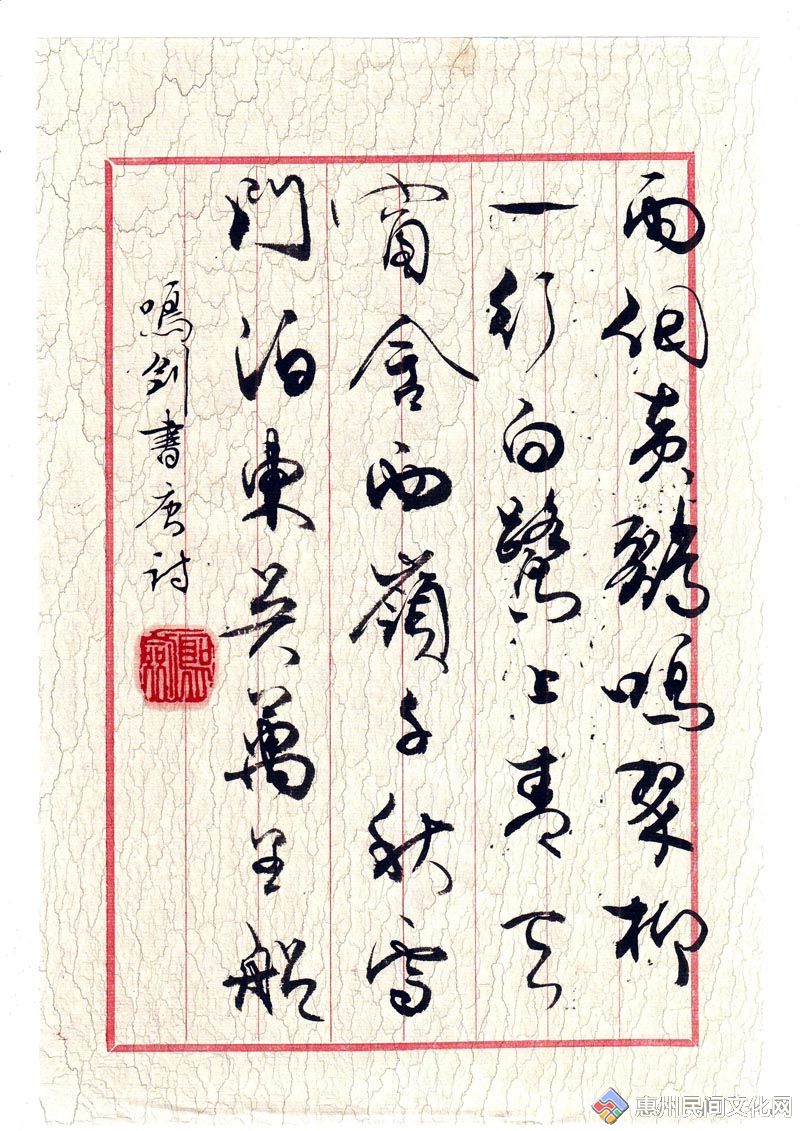 兩個黃鸝鳴翠柳
一行白鷺上青天
窗含西嶺千秋雪
門泊東吳萬里船
鳴劍書唐詩
惠州民间文化网